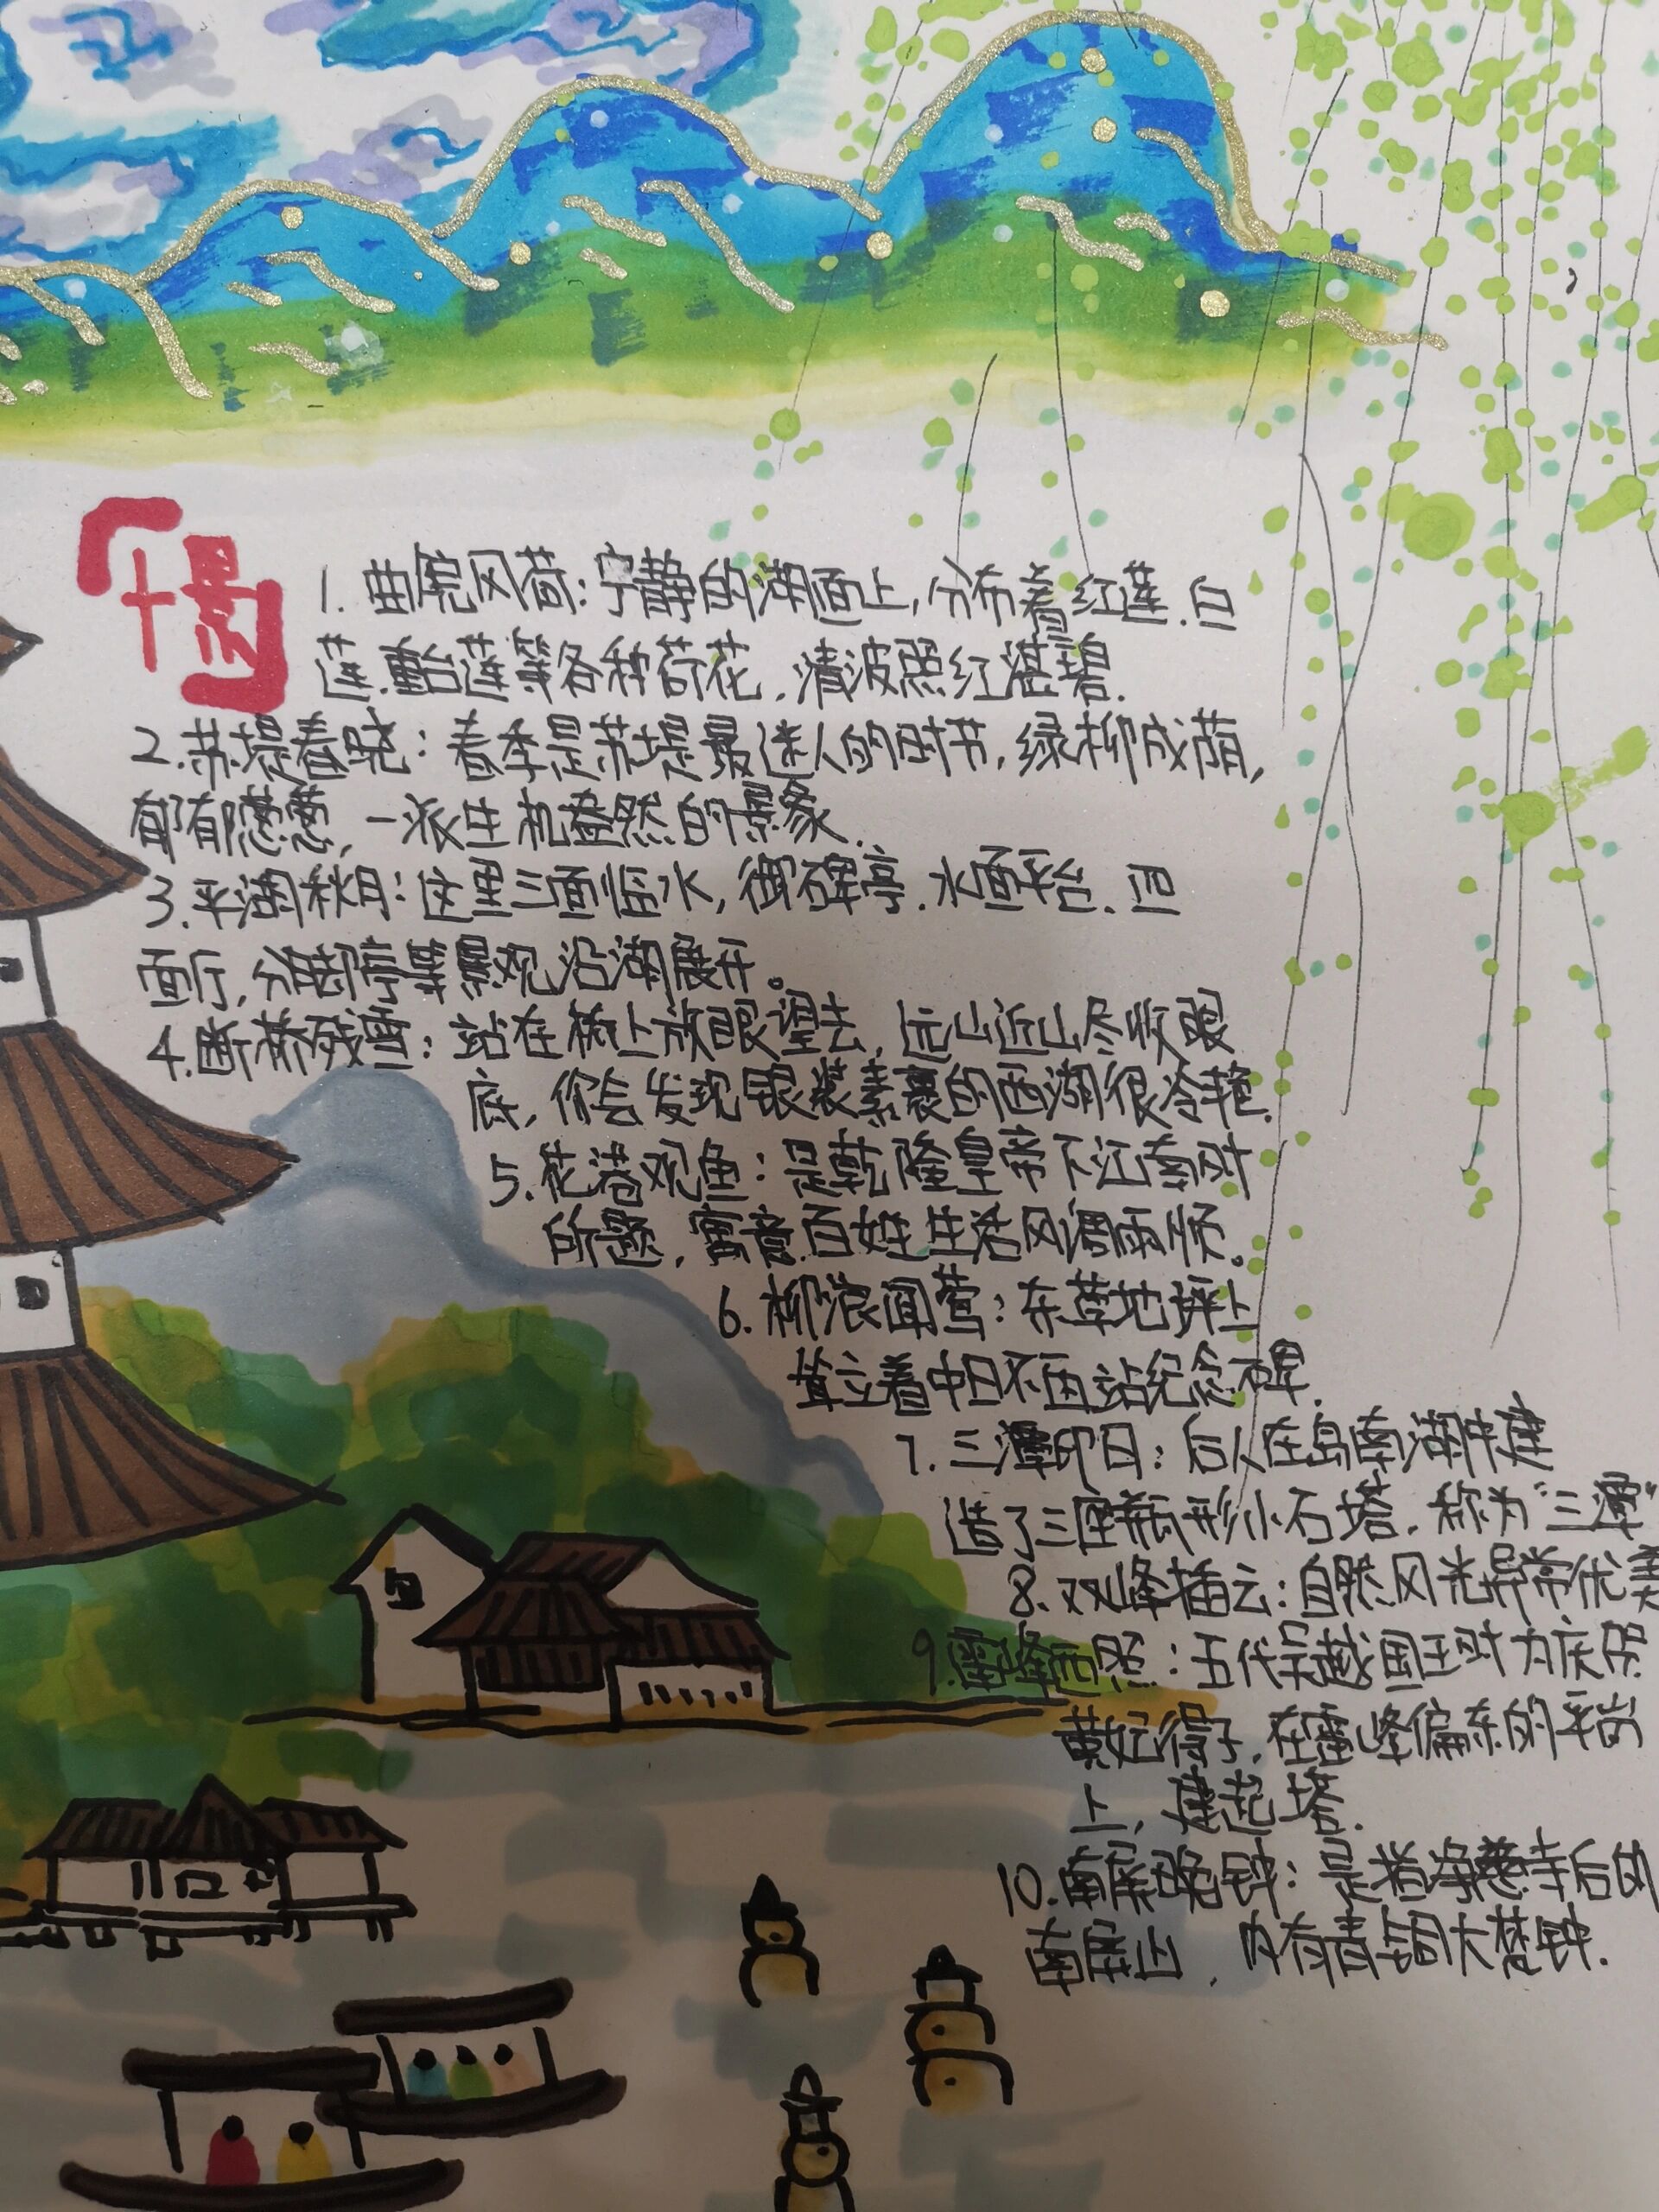 十景
1. 曲院风荷：宁静的湖面上，分布着红莲.白
莲.重台莲等各种荷花，清波照红湛碧.
2.苏堤春晓：春季是苏堤最迷人的时节，绿柳成荫，
郁郁葱葱，一派生机盎然的景象.
3.平湖秋月：这里三面临水，御碑亭.水面平台.四
面厅，分御亭等景观沿湖展开。
4.断桥残雪：站在桥上放眼望去，远山近山尽收眼
底，你会发现银装素裹的西湖很冷艳.
5.花港观鱼：是乾隆皇帝下江南时
所题，寓意百姓生活风调雨顺。
6.柳浪闻莺：东草地坪上
耸立着中日不再战纪念碑.
7.三潭印月：后人在岛南湖中建
造了三座瓶形小石塔，称为“三潭”
8.双峰插云：自然风光异常优美
9.雷峰西照：五代吴越国王时为庆贺
黄妃得子，在雷峰偏东的平岗
上，建起塔.
10.南屏晚钟：是指净慈寺后的
南屏山，内有青铜大梵钟.